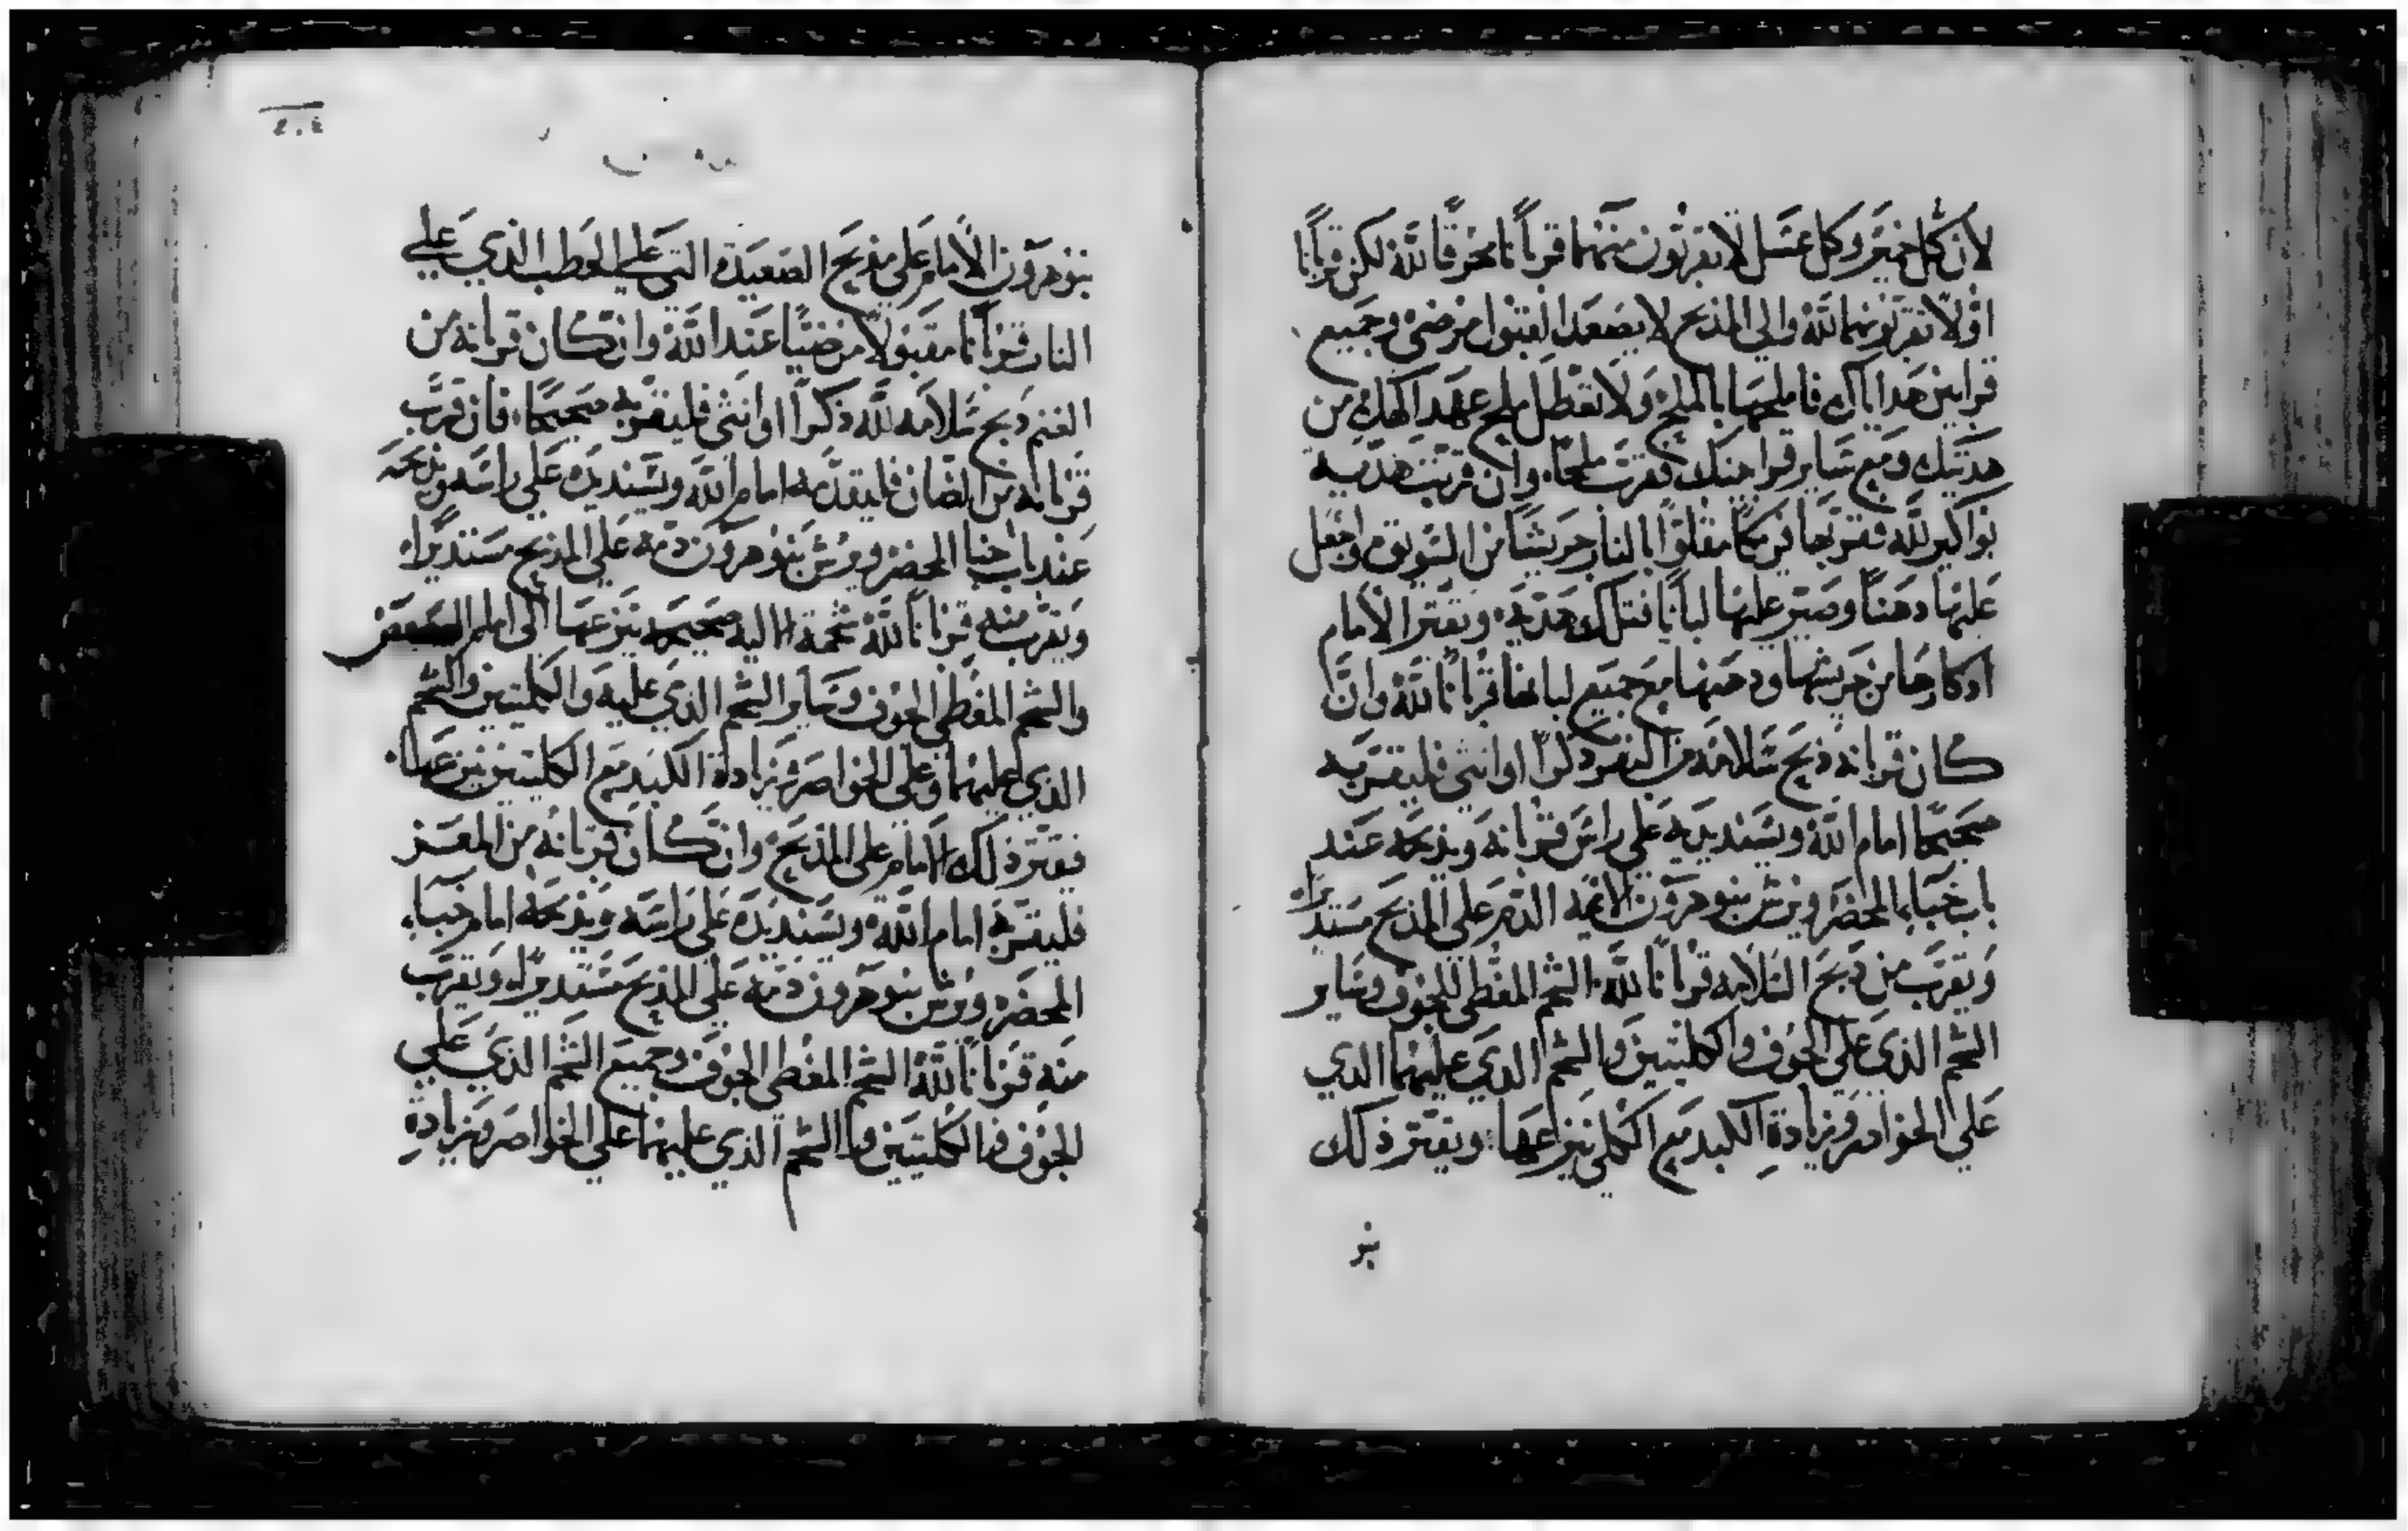 لأن كل خمير وكل عسل لا تقربون منهما قربانا محرقا لله لكن قربانا
اولا تقربونهما لله والي المذبح لا يصعد القبول مرضي وجميع
قرابين هداياك فاملحها بالملح ولا تعطل ملح عهد الهك من
هديتك ومع ساير قرابينك فقرب ملحا وان قربت هدية
بواكير لله فقربها فريكا مقلوا بالنار جريشا من السويق واجعل
عليها دهنا وصير عليها لبانا فتلك هدية ويقتر الامام
ادكارها من جريشها ودهنها مع جميع لبانها قربانا لله وان
كان قربانه ذبح سلامة من البقر ذكرا او انثي فليقربه
صحيحا امام الله ويسند يده علي راس قربانه ويذبحه عند
باب خبا المحضر ويرش بنو هرون الايمه الدم علي المذبح مستديرا
ويقرب من ذبح السلامه قربانا لله الشحم المغطي للجوف وساير
الشحم الذي علي الجوف والكليتين والشحم الذي عليهما الذي
علي الخواصر وزيادة الكبد مع الكلي ينزعها ويقتر ذلك
بنو
٢٠٤
بنو هرون الامام علي مذبح الصعيدة التي علي الحطب الذي علي
النار قربانا مقبولا مرضيا عند الله وان كان قربانه من
الغنم ذبح سلامه لله ذكرا او انثي فليقربه صحيحا فان قرب
قربانه من الضان فليقدمه امام الله ويسند يده علي راسه ويذبحه
عند باب خبا المحضر ويرش بنو هرون دمه علي المذبح مستديرا
ويقرب منه قربانا لله شحمة الاليه صحيحه ينزعها الي امام العصعص
والشحم المغطي الجوف وساير الشحم الذي عليه والكليتين والشحم
الذي عليهما وعلي الخواصر وزيادة الكبد مع الكليتين ينزعها
فيقتر ذلك الامام علي المذبح وان كان قربانه من المعز
فليقربه امام الله ويسند يده علي راسه ويذبحه امام خبا
المحضر ويرش بنو هرون دمه علي المذبح مستديرا ويقرب
منه قربانا لله الشحم المغطي الجوف وجميع الشحم الذي علي
الجوف والكليتين والشحم الذي عليهما علي الخواصر وزيادة